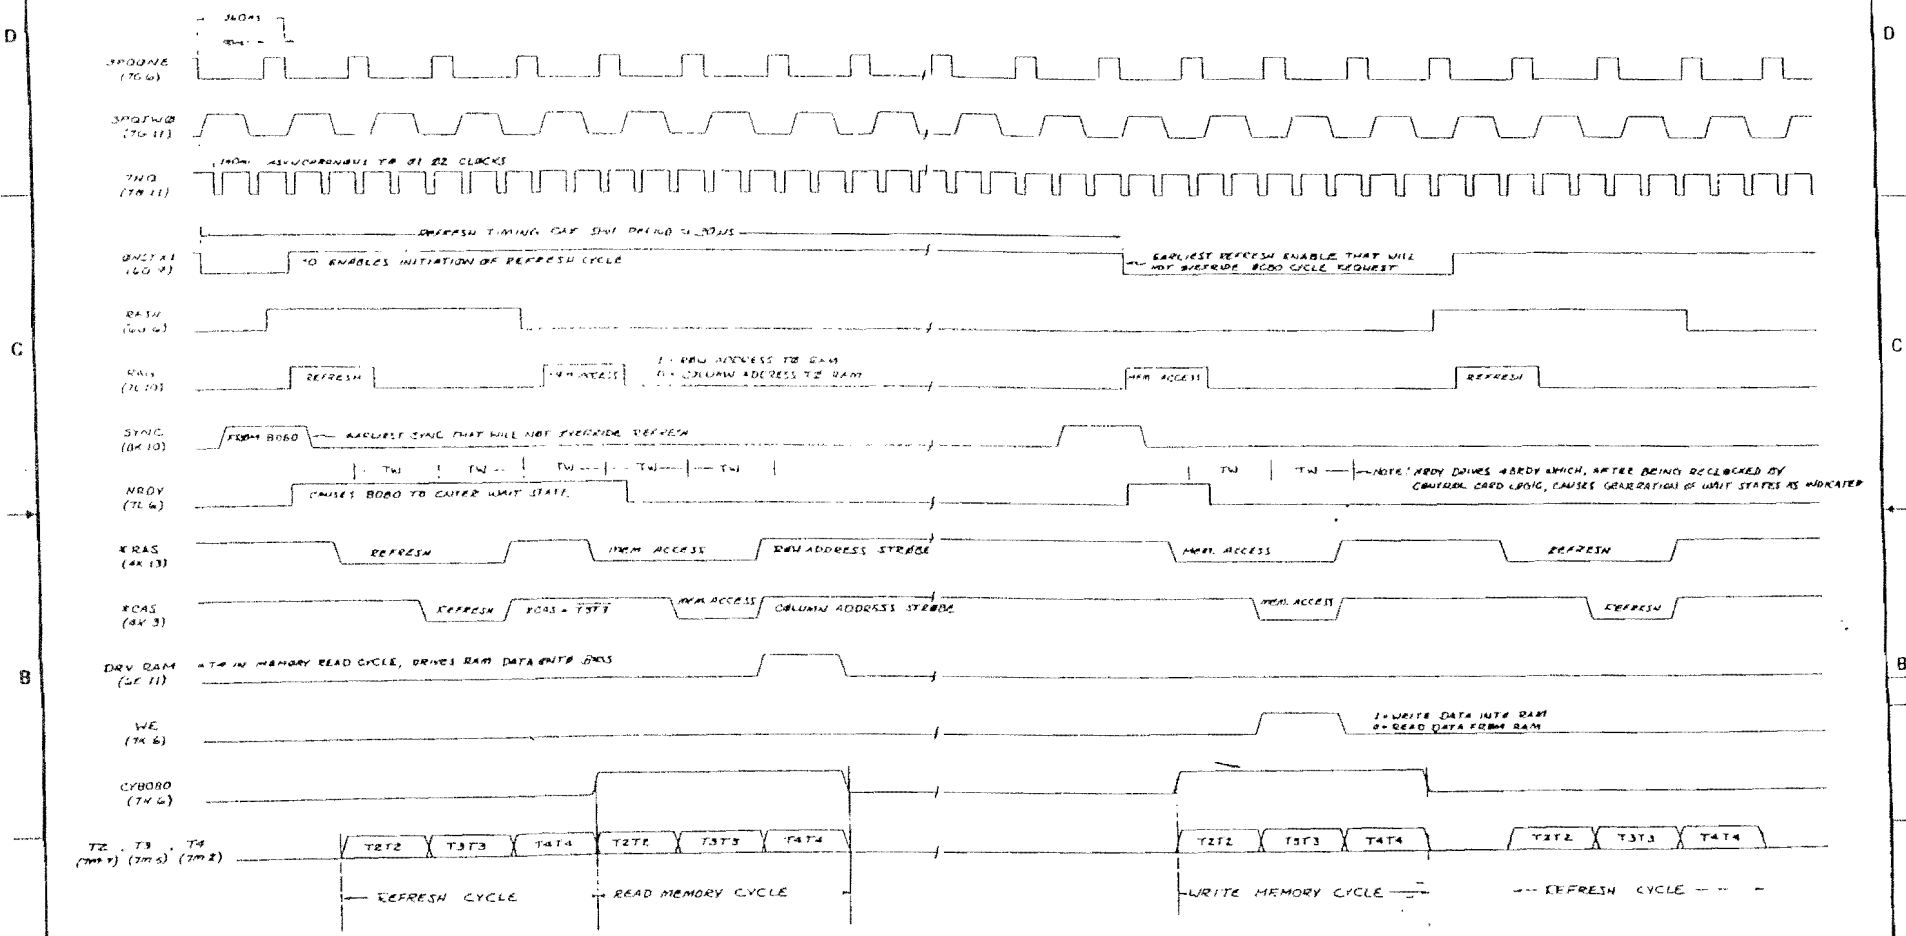 D
D
(7G 6)
(7G 11)
ASYNCHRONOUS TO Ø1 Ø2 CLOCKS
(7H 11)
REFRESH TIMING
TO ENABLES INITIATION OF REFRESH CYCLE
EARLIEST REFRESH ENABLE THAT WILL
NOT OVERRIDE 8080 CYCLE REQUEST
C
C
REFRESH
1 = ROW ADDRESS TO RAM
0 = COLUMN ADDRESS TO RAM
MEM ACCESS
REFRESH
(7L 10)
SYNC
(8K 10)
FROM 8080
EARLIEST SYNC THAT WILL NOT OVERRIDE REFRESH
TW TW TW TW TW
TW TW
NOTE: NRDY DRIVES XBRDY WHICH, AFTER BEING RECLOCKED BY
CONTROL CARD LOGIC, CAUSES GENERATION OF WAIT STATES AS INDICATED
NRDY
(7L 6)
CAUSES 8080 TO ENTER WAIT STATE
XRAS
(4K 13)
REFRESH
MEM ACCESS
ROW ADDRESS STROBE
MEM. ACCESS
REFRESH
XCAS
(4K 3)
REFRESH
XCAS = T3T3
MEM ACCESS
COLUMN ADDRESS STROBE
MEM. ACCESS
REFRESH
B
B
DRV RAM
IN MEMORY READ CYCLE, DRIVES RAM DATA ONTO BUS
WE
(7K 6)
1 = WRITE DATA INTO RAM
0 = READ DATA FROM RAM
CY8080
(7K 6)
T2 , T3 , T4
T2T2 T3T3 T4T4 T2T2 T3T3 T4T4
T2T2 T3T3 T4T4
T2T2 T3T3 T4T4
REFRESH CYCLE
READ MEMORY CYCLE
WRITE MEMORY CYCLE
REFRESH CYCLE